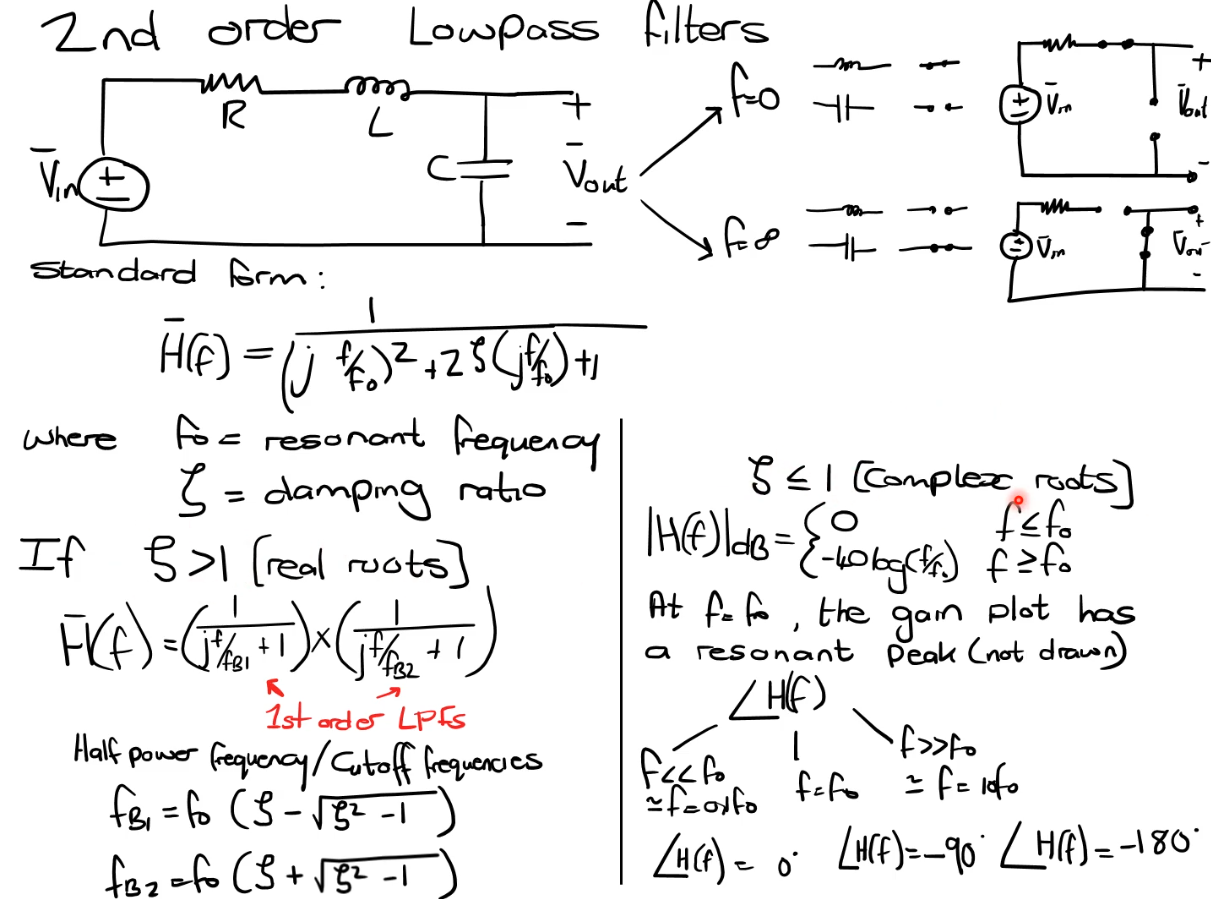 2nd order Lowpass filters
R
L
C
V̄in
+
V̄out
−
f=0
V̄in
+
V̄out
-
f=∞
V̄in
+
V̄out
-
Standard form:
H̄(f) = 1/((j f/fo)² + 2ζ(j f/fo) + 1
where fo = resonant frequency
ζ = damping ratio
If ζ > 1 [real roots]
H̄(f) = (1/(j f/fB1 + 1)) × (1/(j f/fB2 + 1))
1st order LPFs
Half power frequency/Cutoff frequencies
fB1 = fo (ζ - √(ζ² - 1))
fB2 = fo (ζ + √(ζ² - 1))
ζ ≤ 1 [Complex roots]
|H(f)|dB = { 0 f ≤ fo
-40log(f/fo) f ≥ fo
At f=fo, the gain plot has
a resonant peak (not drawn)
∠H(f)
f<<fo
≃f=0.1fo
f=fo
f>>fo
≃ f=10fo
∠H(f) = 0°
∠H(f) = -90°
∠H(f) = -180°